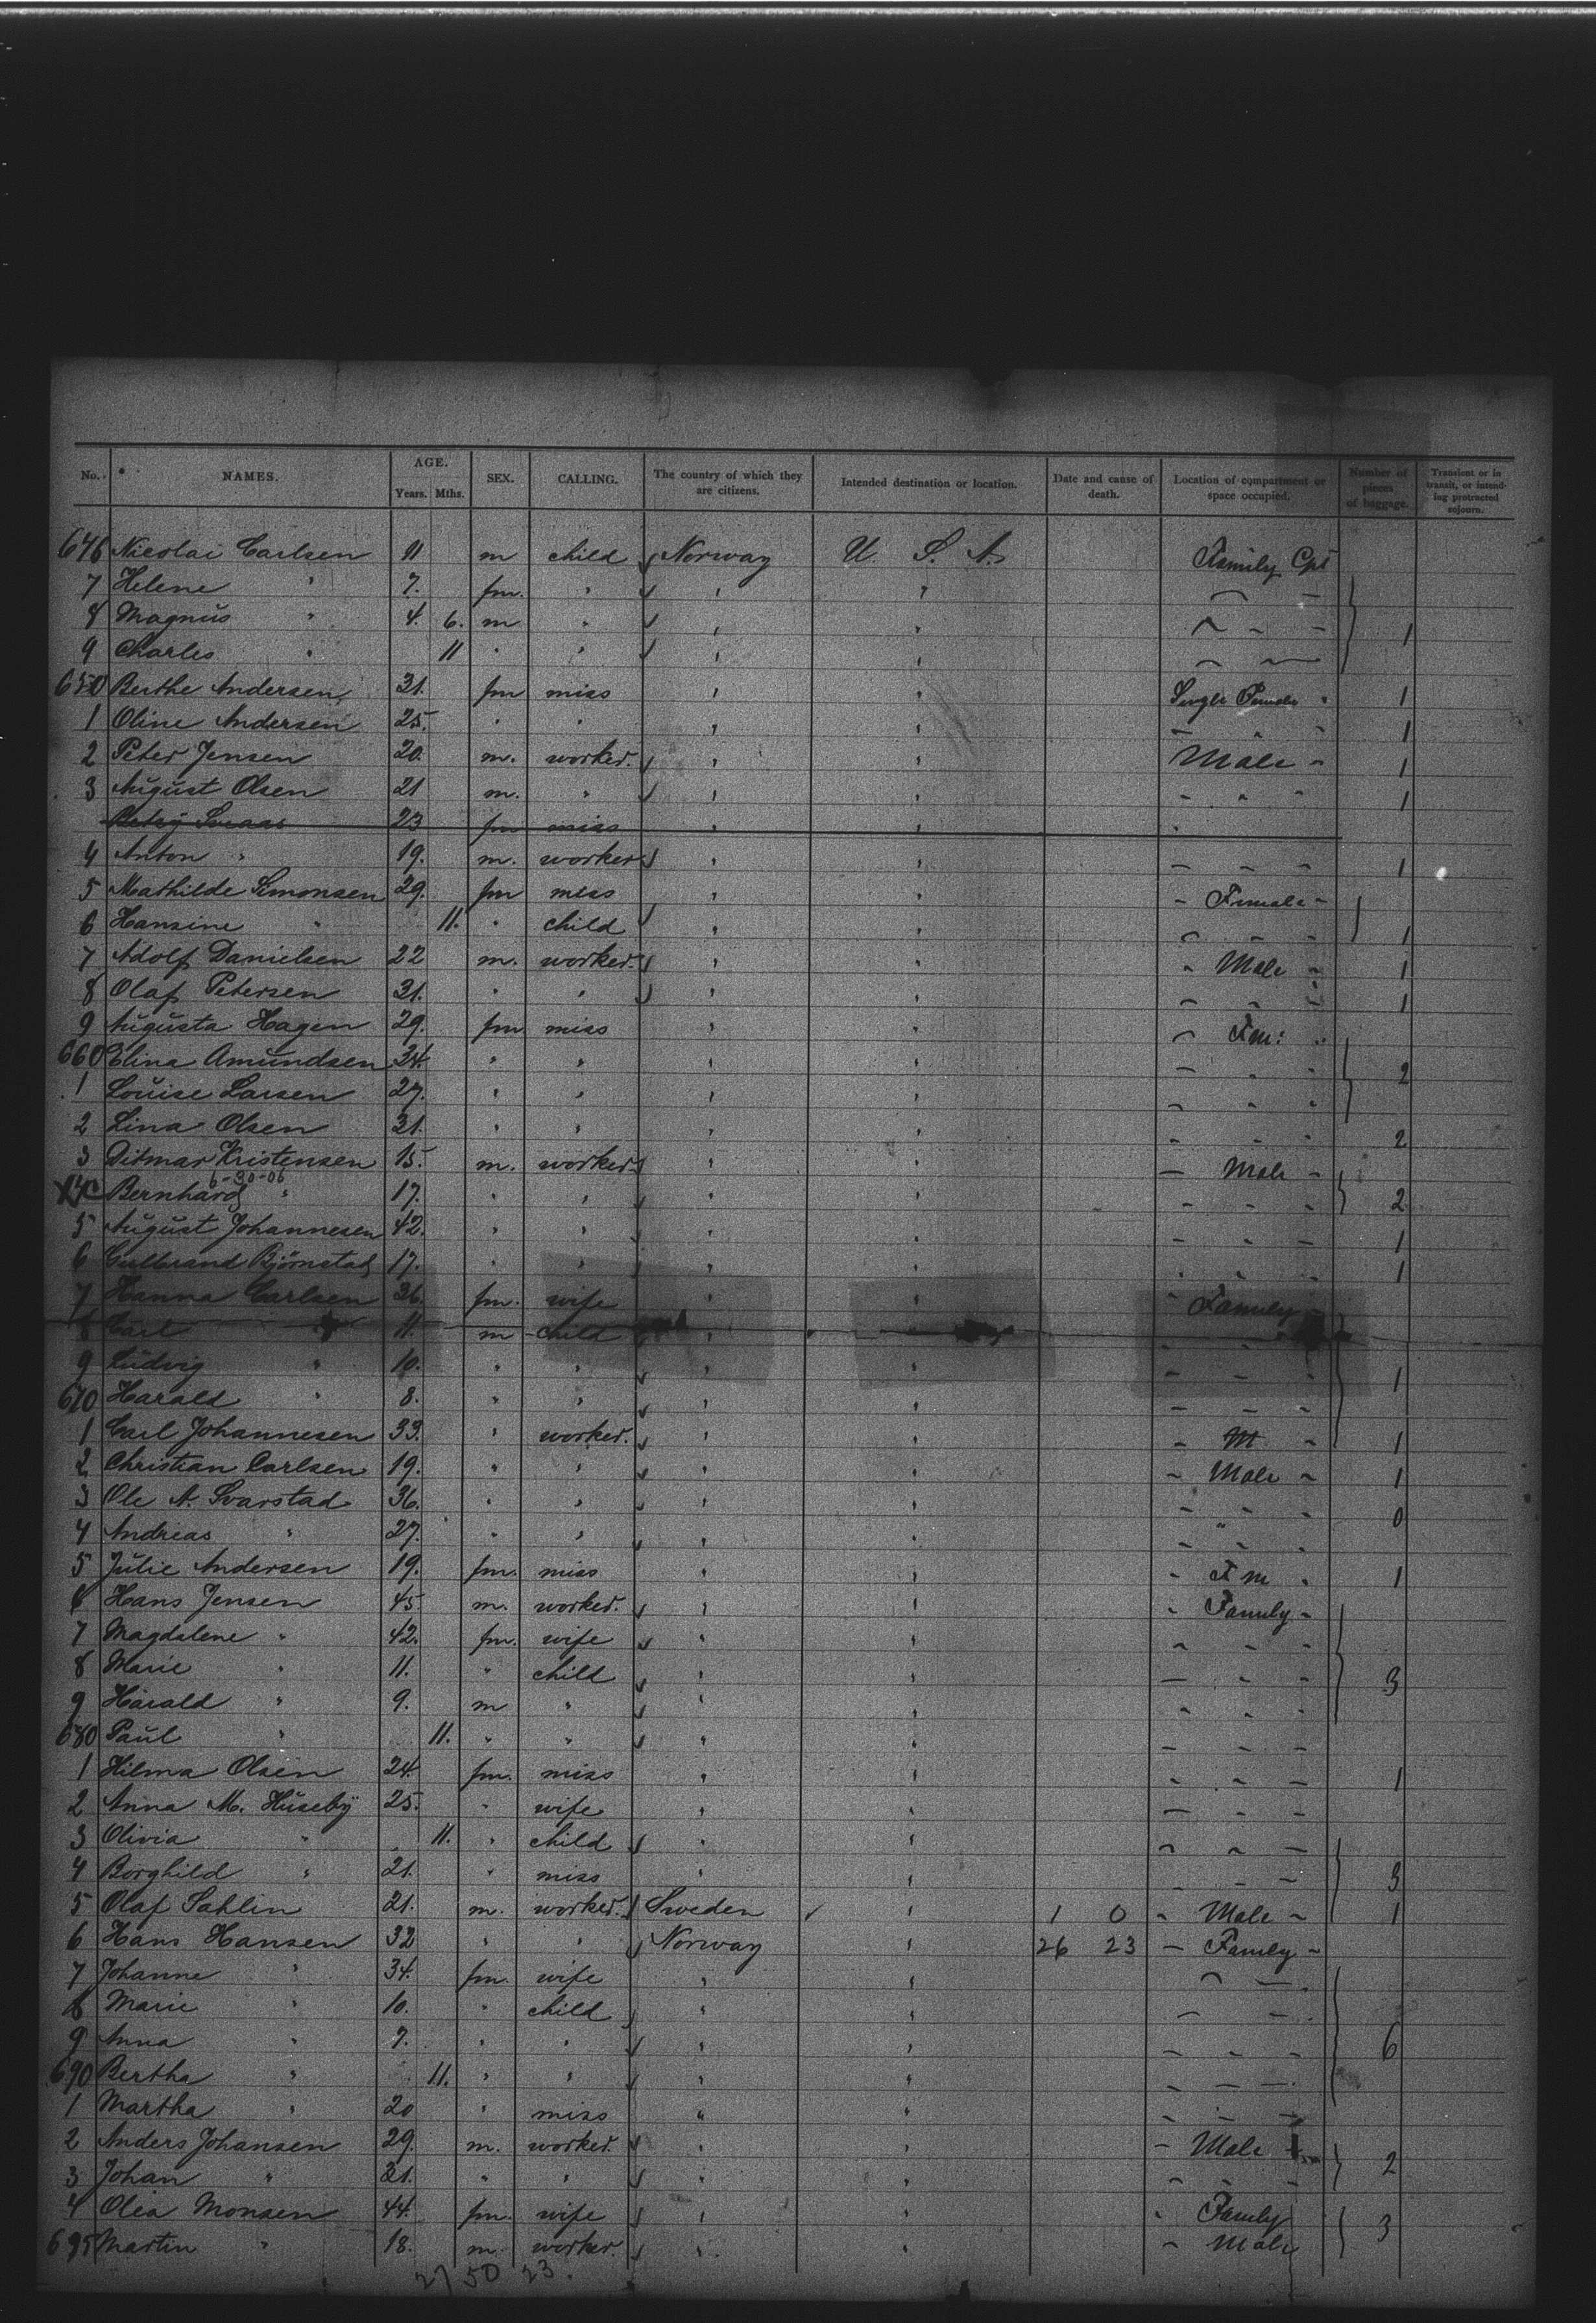 No. NAMES. AGE. Years. Mths. SEX. CALLING. The country of which they are citizens. Intended destination or location. Date and cause of death. Location of compartment or space occupied. Number of pieces of baggage. Transient or in transit, or intending protracted sojourn.
646 Nicolai Carlsen 11 m child Norway U. S. A. Family Cpt
7 Helene " 7. fm. " " " — —
8 Magnus " 4. 6. m " " " — - - 1
9 Charles " 11 " " " " — —
650 Berthe Andersen 31. fm miss " " Single Female " 1
1 Oline Andersen 25. " " " " - " " 1
2 Peter Jensen 20. m. worker. " " Male - 1
3 August Olsen 21 m. " " " - " " 1
23 fm miss " " "
4 Anton " 19. m. worker " " - - - 1
5 Mathilde Simonsen 29. fm miss " " - Female -
6 Hansine " 11. " child " " - - - 1
7 Adolf Danielsen 22 m. worker. " " - Male - 1
8 Olaf Petersen 31. " " " " - - - 1
9 Augusta Hagen 29. fm miss " " - Fm: "
660 Elina Amundsen 24. " " " " - - - 2
1 Louise Larsen 27. " " " " - - -
2 Lina Olsen 31. " " " " - - - 2
3 Ditmar Kristensen 15. m. worker " " - Male -
6-30-06
4 Bernhard " 17. " " " " - - - 2
5 August Johannesen 42. " " " " - - - 1
6 Gulbrand Björnstad 17. " " " " - - - 1
7 Hanna Carlsen 36. fm. wife " " - Family -
8 Carl " 11. m child " " - - -
9 Ludvig " 10. " " " " - - - 1
670 Harald " 8. " " " " - - -
1 Carl Johannesen 33. " worker. " " - M - 1
2 Christian Carlsen 19. " " " " - Male - 1
3 Ole A. Svarstad 36. " " " " - - - 0
4 Andreas " 27. " " " " - - -
5 Julie Andersen 19. fm. miss " " - Fm " 1
6 Hans Jensen 45. m. worker. " " - Family -
7 Magdalene " 42. fm. wife " " - - -
8 Marie " 11. " child " " - - - 3
9 Harald " 9. m " " " - - -
680 Paul " 11. " " " " - - -
1 Hilma Olsen 24. fm. miss " " - - - 1
2 Anna M. Huseby 25. " wife " " - - -
3 Olivia " 11. " child " " - - -
4 Borghild " 21. " miss " " - - - 3
5 Olaf Sahlin 21. m. worker. Sweden " 1 0 - Male - 1
6 Hans Hansen 32 " " Norway " 26 23 - Family -
7 Johanne " 34. fm. wife " " - -
8 Marie " 10. " child " " - -
9 Anna " 7. " " " " - - - 6
690 Bertha " 11. " " " " - - -
1 Martha " 20 " miss " " - - -
2 Anders Johansen 29. m. worker. " " - Male
3 Johan " 21. " " " " - - - 2
4 Olea Monsen 44. fm. wife " " - Family
695 Martin " 18. m. worker. " " - Male 3
27 50 23.